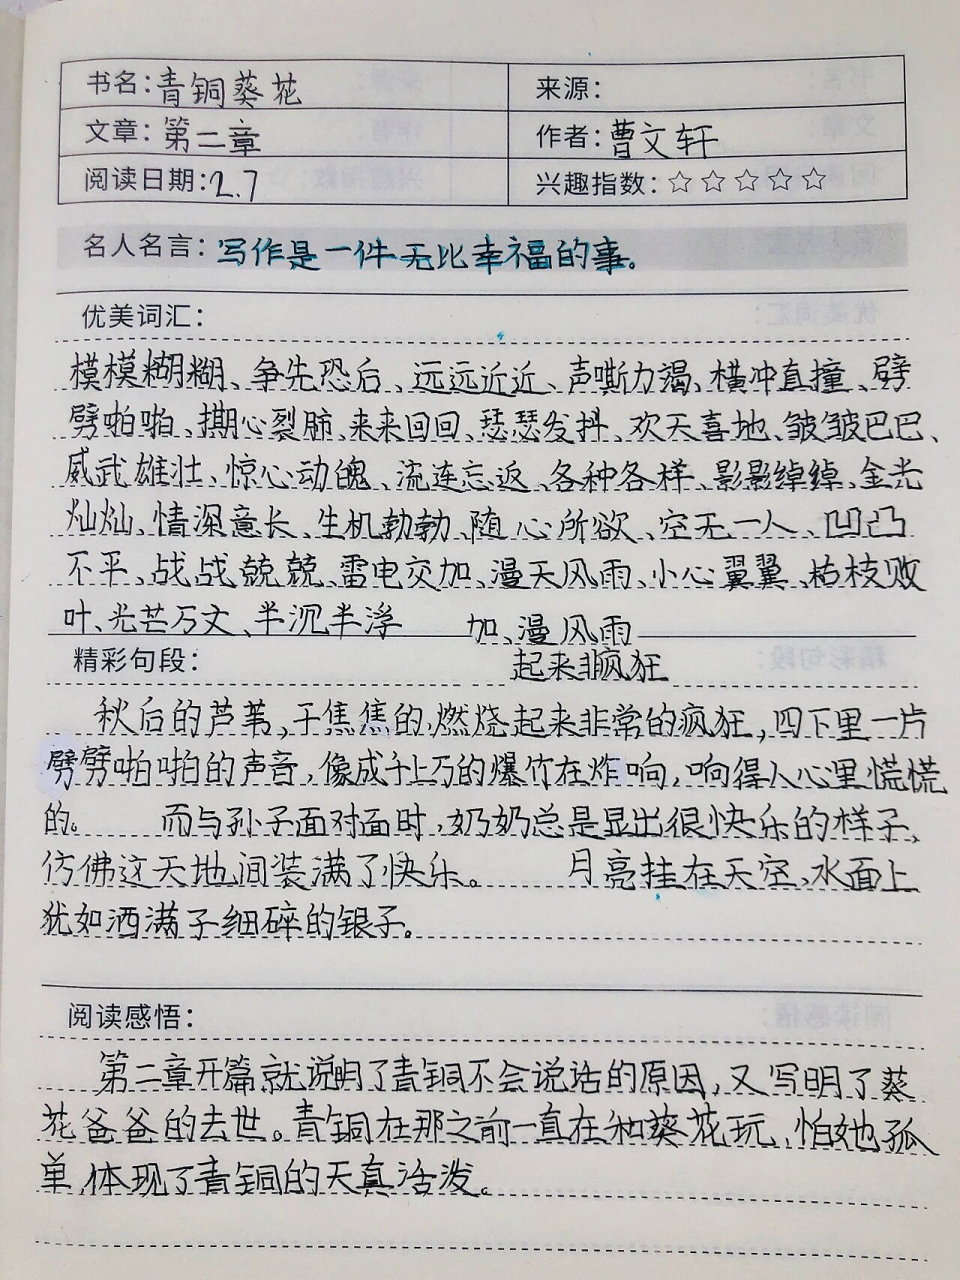 书名：青铜葵花 来源：
文章：第二章 作者：曹文轩
阅读日期：2.7 兴趣指数：☆☆☆☆☆
名人名言：写作是一件无比幸福的事。
优美词汇：
模模糊糊、争先恐后、远远近近、声嘶力竭、横冲直撞、劈
劈啪啪、撕心裂肺、来来回回、瑟瑟发抖、欢天喜地、皱皱巴巴、
威武雄壮、惊心动魄、流连忘返、各种各样、影影绰绰、金光
灿灿、情深意长、生机勃勃、随心所欲、空无一人、凹凸
不平、战战兢兢、雷电交加、漫天风雨、小心翼翼、枯枝败
叶、光芒万丈、半沉半浮 加、漫风雨
精彩句段： 起来非疯狂
秋后的芦苇，干焦焦的，燃烧起来非常的疯狂，四下里一片
劈劈啪啪的声音，像成千上万的爆竹在炸响，响得人心里慌慌
的。 而与孙子面对面时，奶奶总是显出很快乐的样子，
仿佛这天地间装满了快乐。 月亮挂在天空，水面上
犹如洒满了细碎的银子。
阅读感悟：
第二章开篇就说明了青铜不会说话的原因，又写明了葵
花爸爸的去世。青铜在那之前一直在和葵花玩，怕她孤
单，体现了青铜的天真活泼。